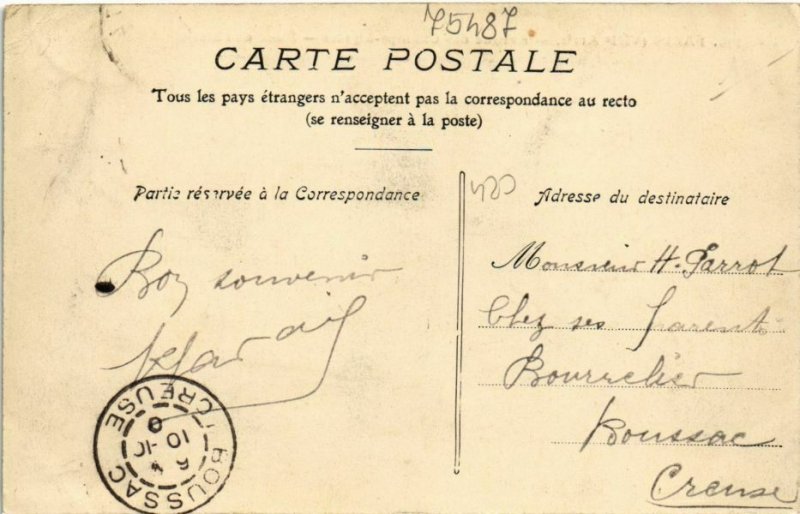 75487
CARTE POSTALE
Tous les pays étrangers n'acceptent pas la correspondance au recto
(se renseigner à la poste)
Partie réservée à la Correspondance
Bon souvenir
Adresse du destinataire
Monsieur H. Parrot
Chez ses parents
Bourrelier
Boussac
Creuse
BOUSSAC
CREUSE